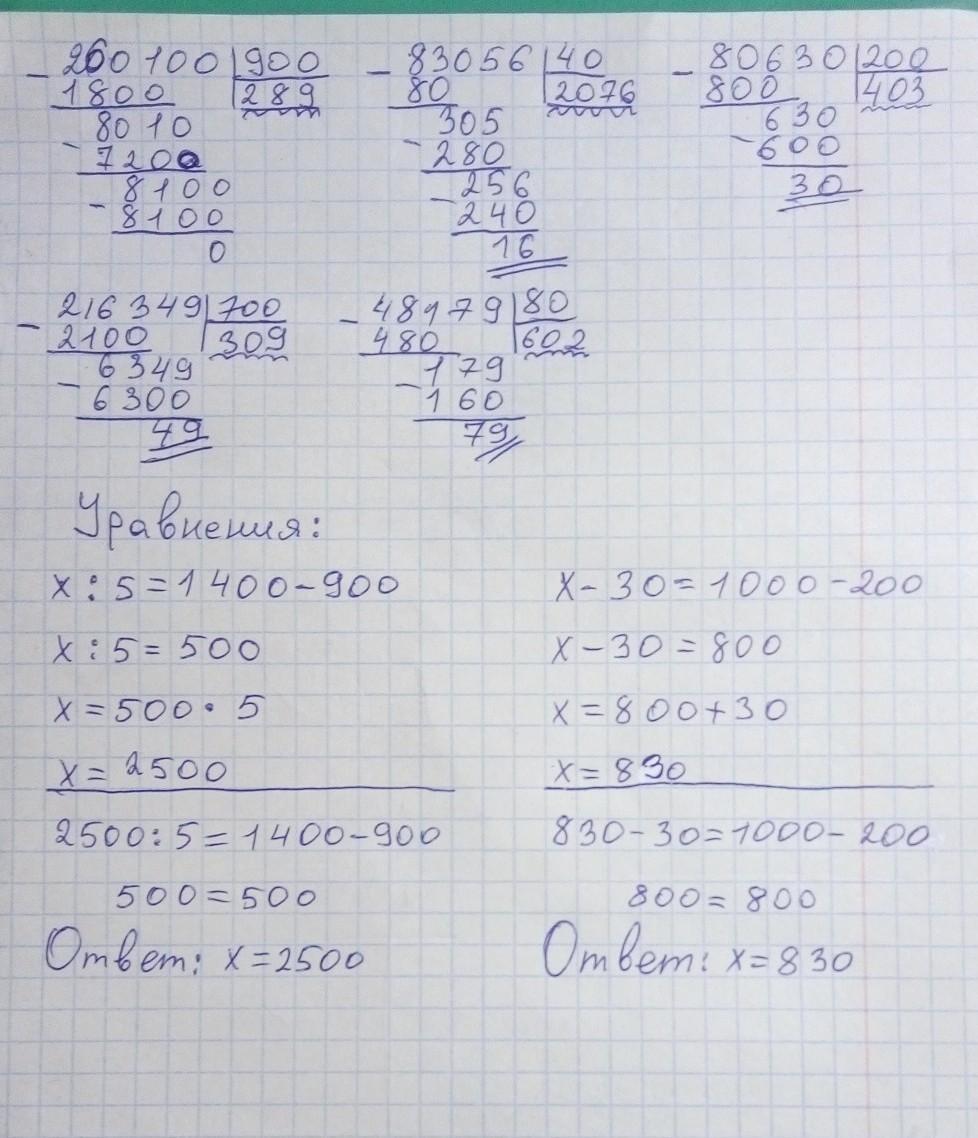 - 260 100 | 900 - 83056 | 40 - 80630 | 200
1800 | 289 80 | 2076 800 | 403
- 8010 - 305 - 630
7200 280 600
- 8100 - 256 30
8100 240
0 16
- 216 349 | 700 - 48179 | 80
2100 | 309 480 | 602
- 6349 - 179
6300 160
49 79
Уравнения:
x : 5 = 1400 - 900 x - 30 = 1000 - 200
x : 5 = 500 x - 30 = 800
x = 500 · 5 x = 800 + 30
x = 2500 x = 830
2500 : 5 = 1400 - 900 830 - 30 = 1000 - 200
500 = 500 800 = 800
Ответ: x = 2500 Ответ: x = 830